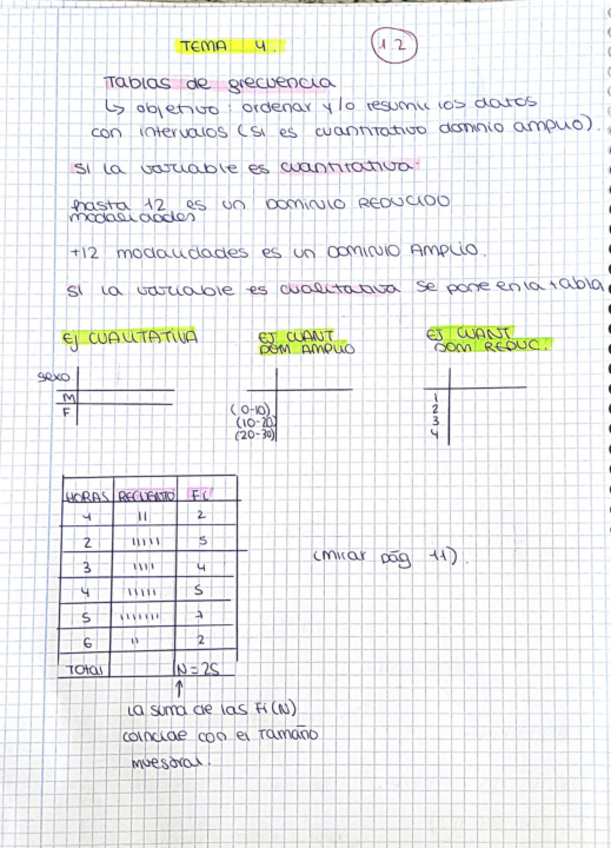 TEMA 4.
12
Tablas de frecuencia
↳ objetivo: ordenar y/o resumir los datos
con intervalos (si es cuantitativo dominio amplio).
si la variable es cuantitativa:
hasta 12 es un DOMINIO REDUCIDO
modalidades
+12 modalidades es un DOMINIO AMPLIO.
si la variable es cualitativa se pone en la tabla.
EJ CUALITATIVA
EJ CUANT
DOM AMPLIO
EJ CUANT
DOM REDUC.
sexo
M
F
(0-10)
(10-20)
(20-30)
1
2
3
4
HORAS RECUENTO Fi
1 II 2
2 IIIII 5
3 IIII 4
4 IIIII 5
5 IIIIIII 7
6 II 2
Total N=25
(mirar pág 11).
↑
La suma de las Fi(N)
coincide con el tamaño
muestral.